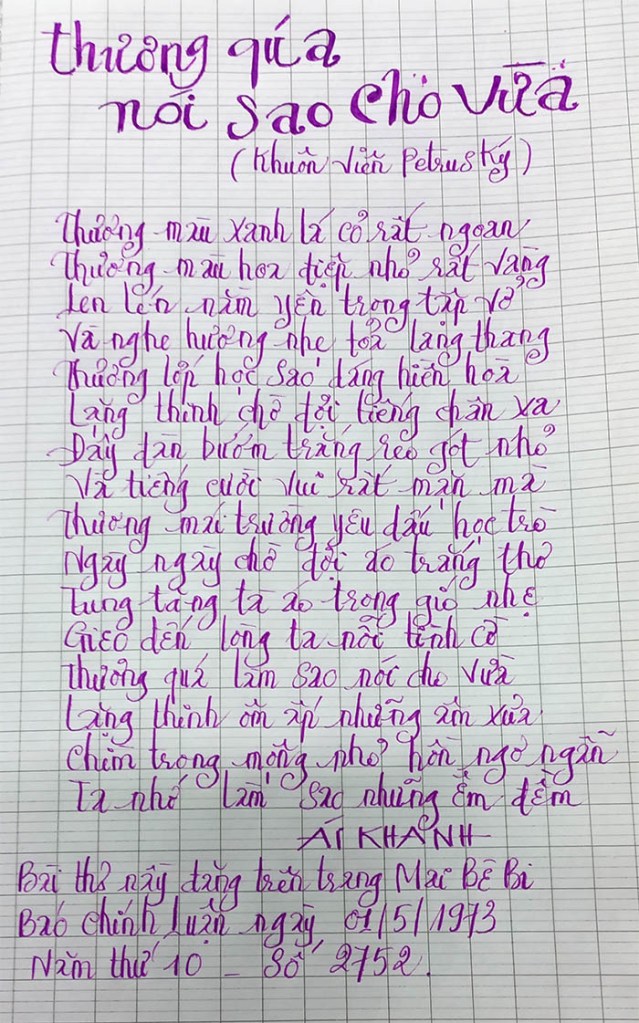 Thương quá
nói sao cho vừa
(Khuôn viên Petrus Ký)
Thương màu xanh lá cỏ rất ngoan
Thương màu hoa điệp nhỏ rất vàng
Len lén nằm yên trong tập vở
Và nghe hương nhẹ toả lang thang
Thương lớp học sao dáng hiền hoà
Lặng thinh chờ đợi tiếng chân xa
Dậy đàn bướm trắng reo gót nhỏ
Và tiếng cười vui rất mặn mà
Thương mái trường yêu dấu học trò
Ngày ngày chờ đợi áo trắng thơ
Tung tăng tà áo trong gió nhẹ
Gieo đến lòng ta nỗi tình cờ
Thương quá làm sao nói cho vừa
Lặng thinh ôm ấp những âm xưa
Chìm trong mộng nhỏ hồn ngơ ngẩn
Ta nhớ làm sao những êm đềm
ÁI KHANH
Bài thơ này đăng trên trang Mai Bê Bi
Báo chính luận ngày 01/5/1973
Năm thứ 10 - Số 2752.